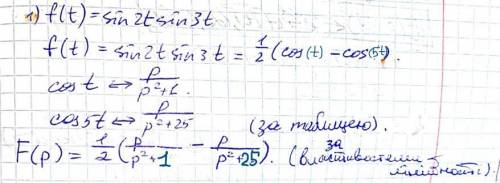 1) f(t) = sin2t sin3t
f(t) = sin2t sin3t = 1/2 (cos(t) - cos(5t)).
cost ↔ p/(p²+1).
cos5t ↔ p/(p²+25) (за таблицею).
F(p) = 1/2 (p/(p²+1) - p/(p²+25)). (за властивостями лінійності)!